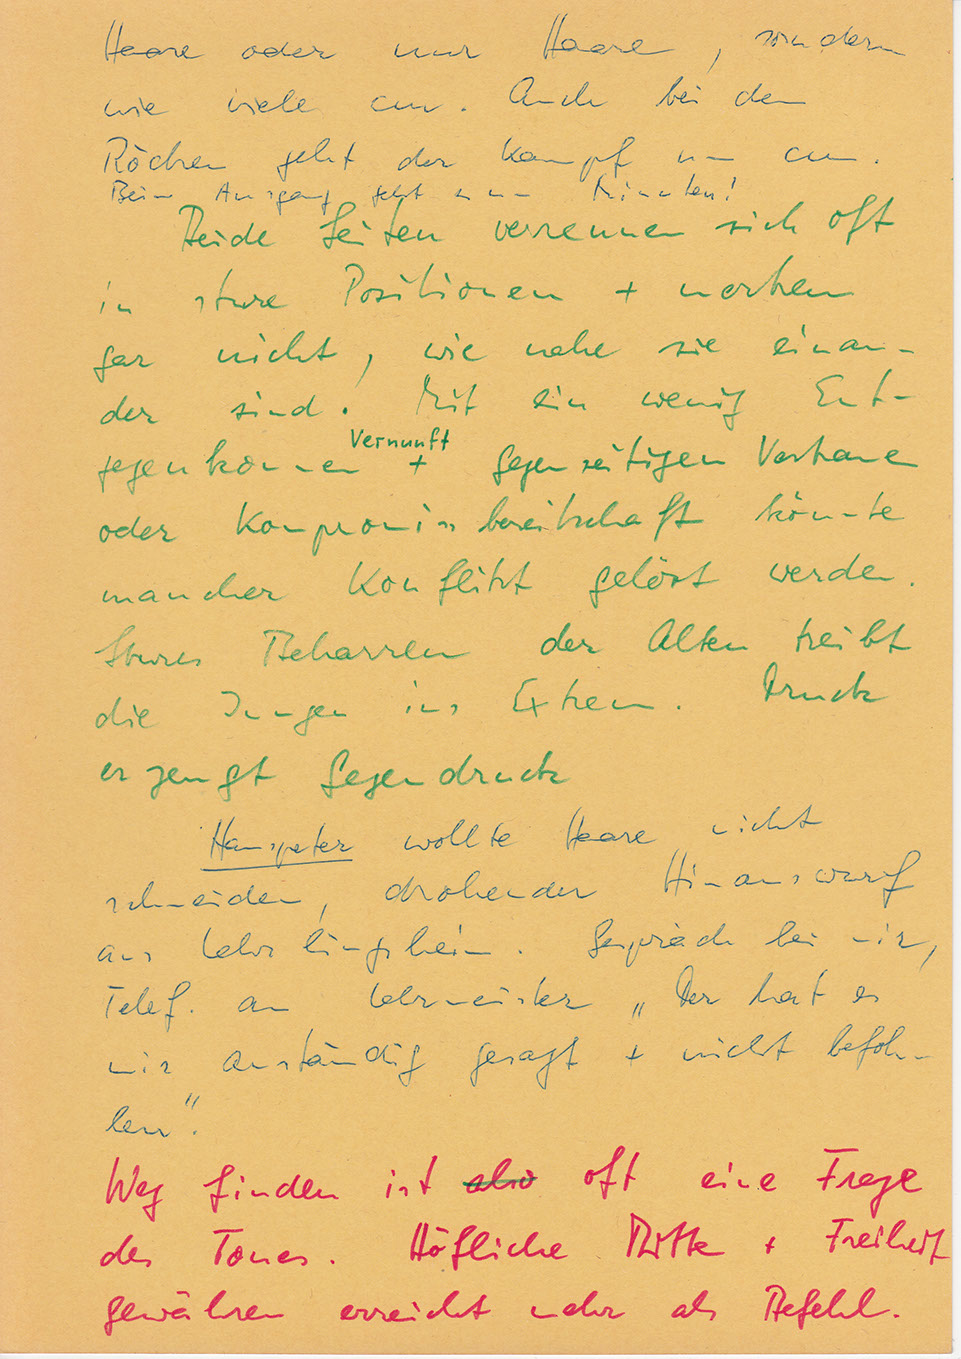 Haare oder nur Haare, sondern
wie viele cm. Auch bei den
Röcken geht der Kampf um cm.
Beim Ausgang geht es um Minuten!
Beide Seiten verrennen sich oft
in sture Positionen + merken
gar nicht, wie nahe sie einan-
der sind. Mit ein wenig Ent-
gegenkommen Vernunft + gegenseitigen Vertrauen
oder Kompromissbereitschaft könnte
mancher Konflikt gelöst werden.
Stures Beharren der Alten treibt
die Jungen ins Extrem. Druck
erzeugt Gegendruck
Hanspeter wollte Haare nicht
schneiden, drohender Hinauswurf
aus Lehrlingsheim. Gespräch bei mir,
Telef. an Lehrmeister „Der hat es
mir anständig gesagt + nicht befoh-
len".
Weg finden ist also oft eine Frage
des Tones. Höfliche Bitte + Freiheit
gewähren erreicht mehr als Befehl.